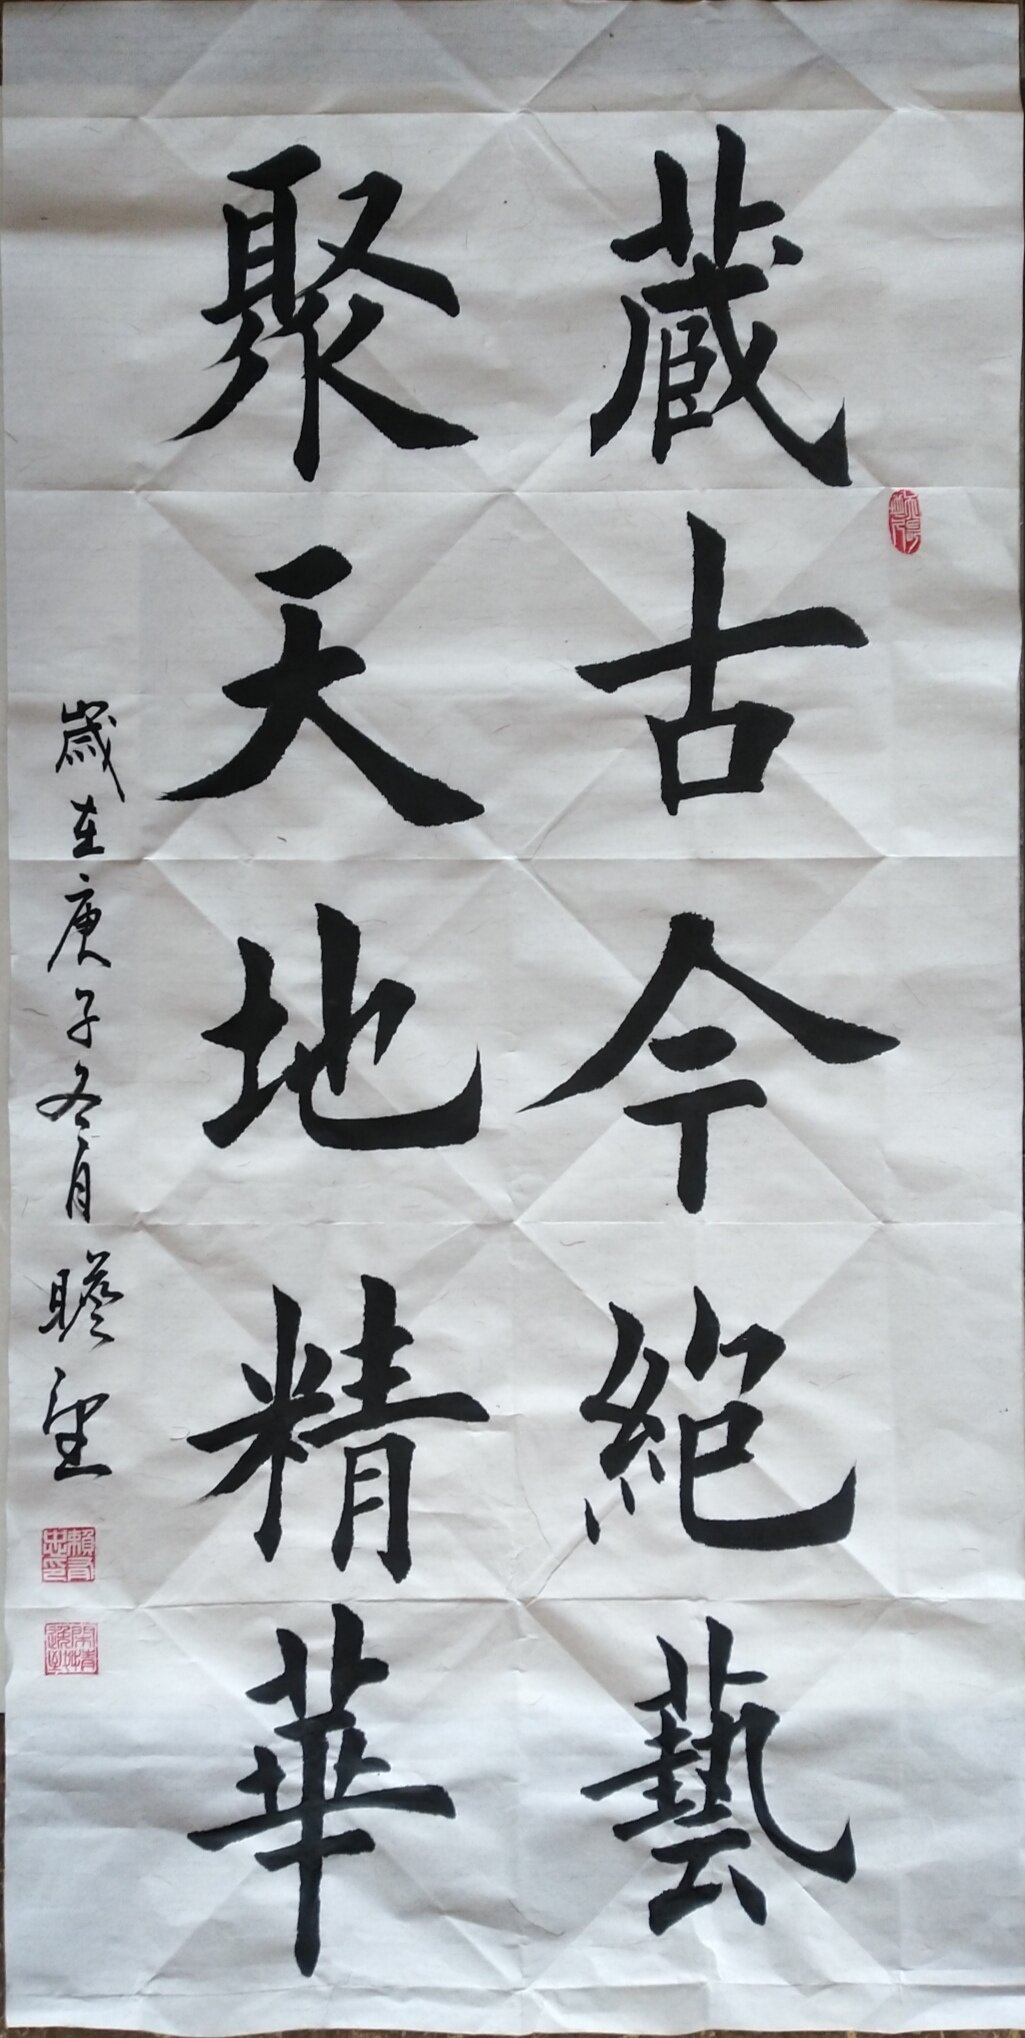 藏古今絕藝
聚天地精華
歲在庚子冬月瞻聖